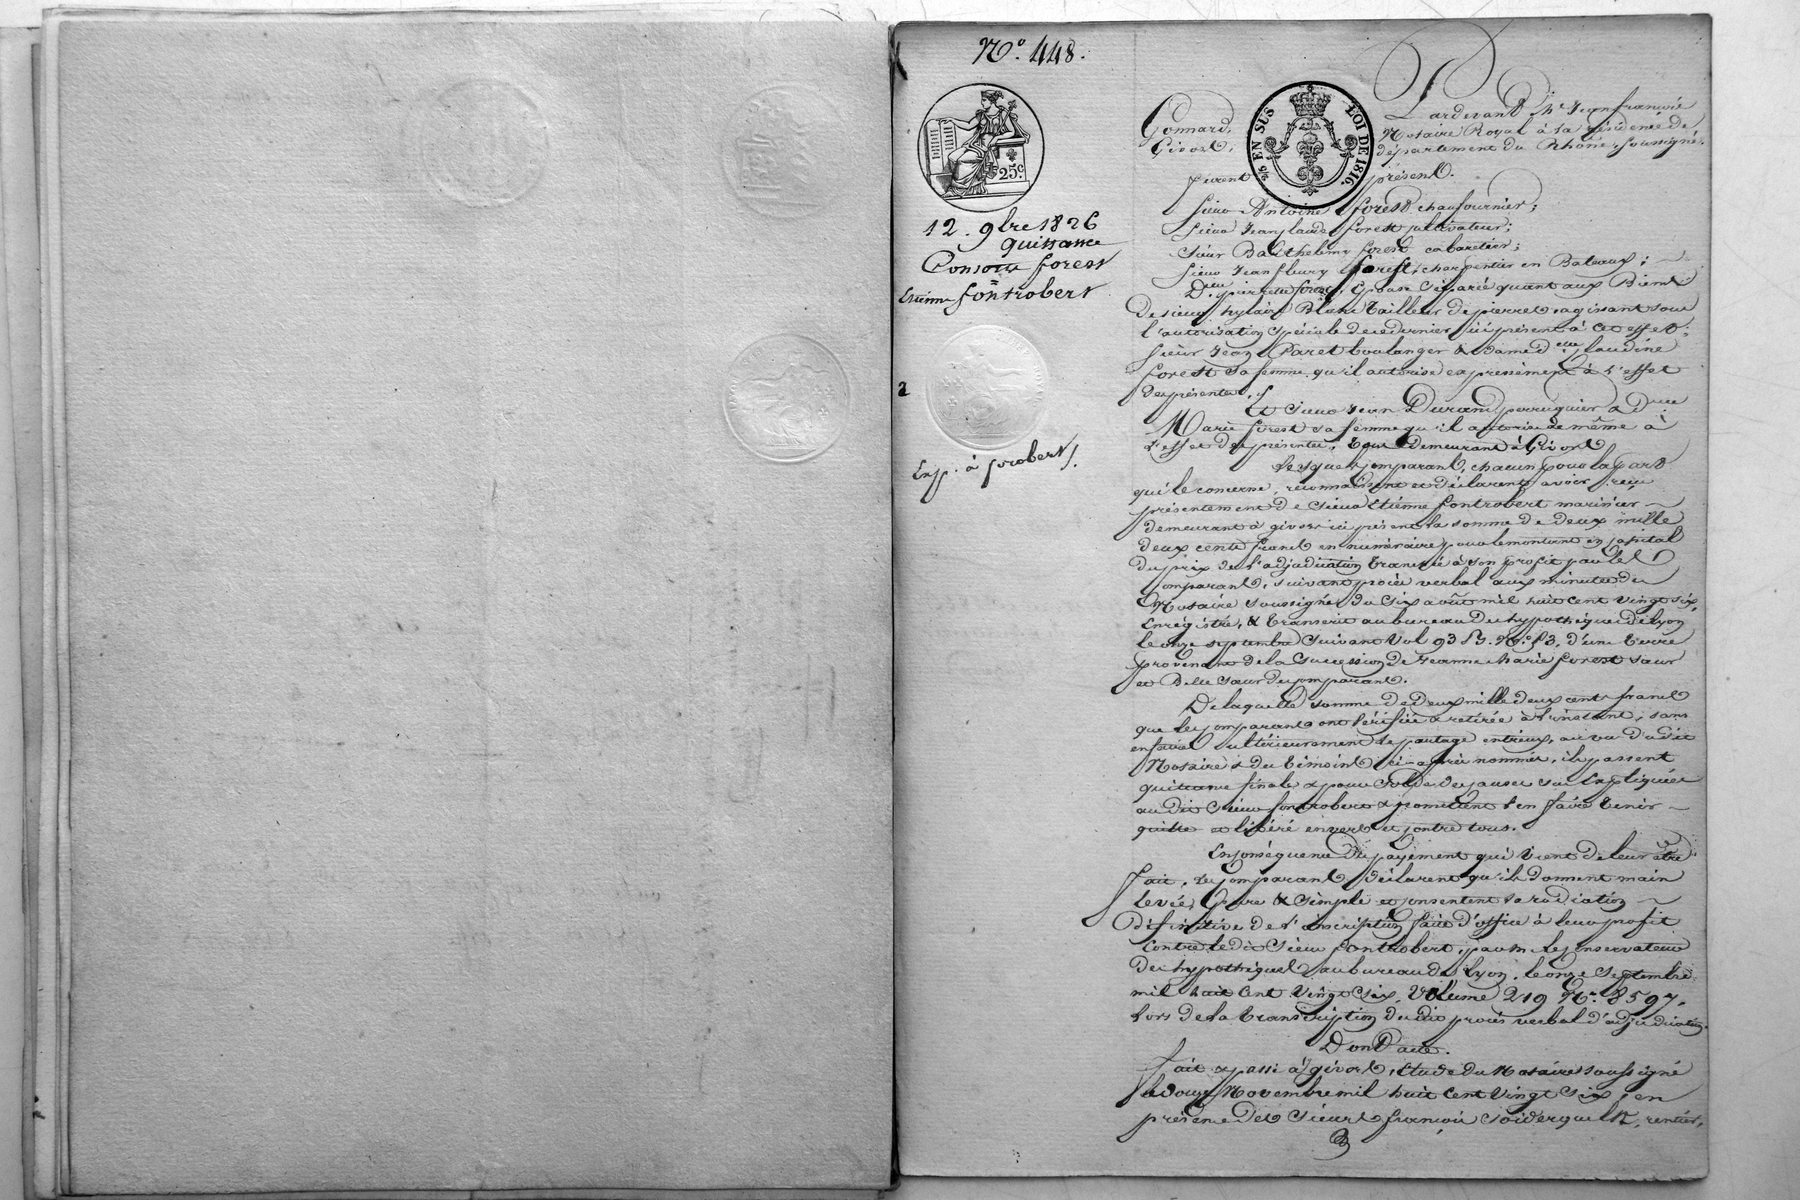 N.º 448.
25.c
5/6 EN SUS LOI DE 1816.
12. 9bre 1826
quittance
Consorts forest
Etienne fontrobert
2
Exp. à f.robert.
Pardevant Me Jean françois
Gonnard, Notaire Royal à la résidence de
Givors, département du Rhône, soussigné,
furent présents.
Sieur Antoine forest chaufournier;
Sieur Jean claude forest cultivateur;
Sieur Barthelemy forest cabaretier;
Sieur Jean fleury forest, charpentier en Bateaux;
De. pierrette forest, Epouse séparée quant aux Biens
de sieur hylaire Blanc tailleur de pierres, agissant sous
l'autorisation spéciale de ce dernier ici présent à cet effet;
Sieur Jean Paret boulanger & dame claudine
forest sa femme qu'il autorise expressément à l'effet
des présentes;
Et Sieur Jean Durand perruquier &
Marie forest sa femme qu'il autorise de même à
l'effet des présentes, tous demeurant à Givors,
Lesquels comparants, chacun pour la part
qui le concerne, reconnaissent et déclarent avoir reçu
présentement de Sieur Etienne fontrobert marinier
demeurant à givors ici présent la somme de deux mille
deux cents francs en numéraire, pour le montant en capital
du prix de l'adjudication tranchée à son profit par les
comparants, suivant procès verbal aux minutes du
Notaire soussigné, du six août mil huit cent vingt six,
Enregistré, & transcrit au bureau des hypothèques de Lyon
le onze septembre suivant vol. 93 d'une terre
provenant de la succession de Jeanne Marie forest sœur
et Belle sœur des comparants.
De laquelle somme de Deux mille deux cents francs
que les comparants ont vérifiée & retirée à l'instant, sans
en faire ultérieurement le partage entr'eux, au vu dudit
Notaire & des témoins ci-après nommés, ils passent
quittance finale & pour solde des causes sus Expliquées
au dit Sieur fontrobert & promettent l'en faire tenir
quitte et libéré envers et contre tous.
En conséquence du payement qui vient de leur être
fait, les comparants déclarent qu'ils donnent main
levée, pure & simple et consentent la radiation
définitive de l'inscription faite d'office à leur profit
contre le dit Sieur fontrobert, par m. le conservateur
des hypothèques au bureau de Lyon, le onze Septembre
mil huit cent vingt six, Volume 219 N.º 8597.
lors de la transcription du dit procès verbal d'adjudication.
Dont acte.
fait & passé à givors, étude du Notaire soussigné
le douze Novembre mil huit cent vingt six, en
présence des Sieurs françois rentier,